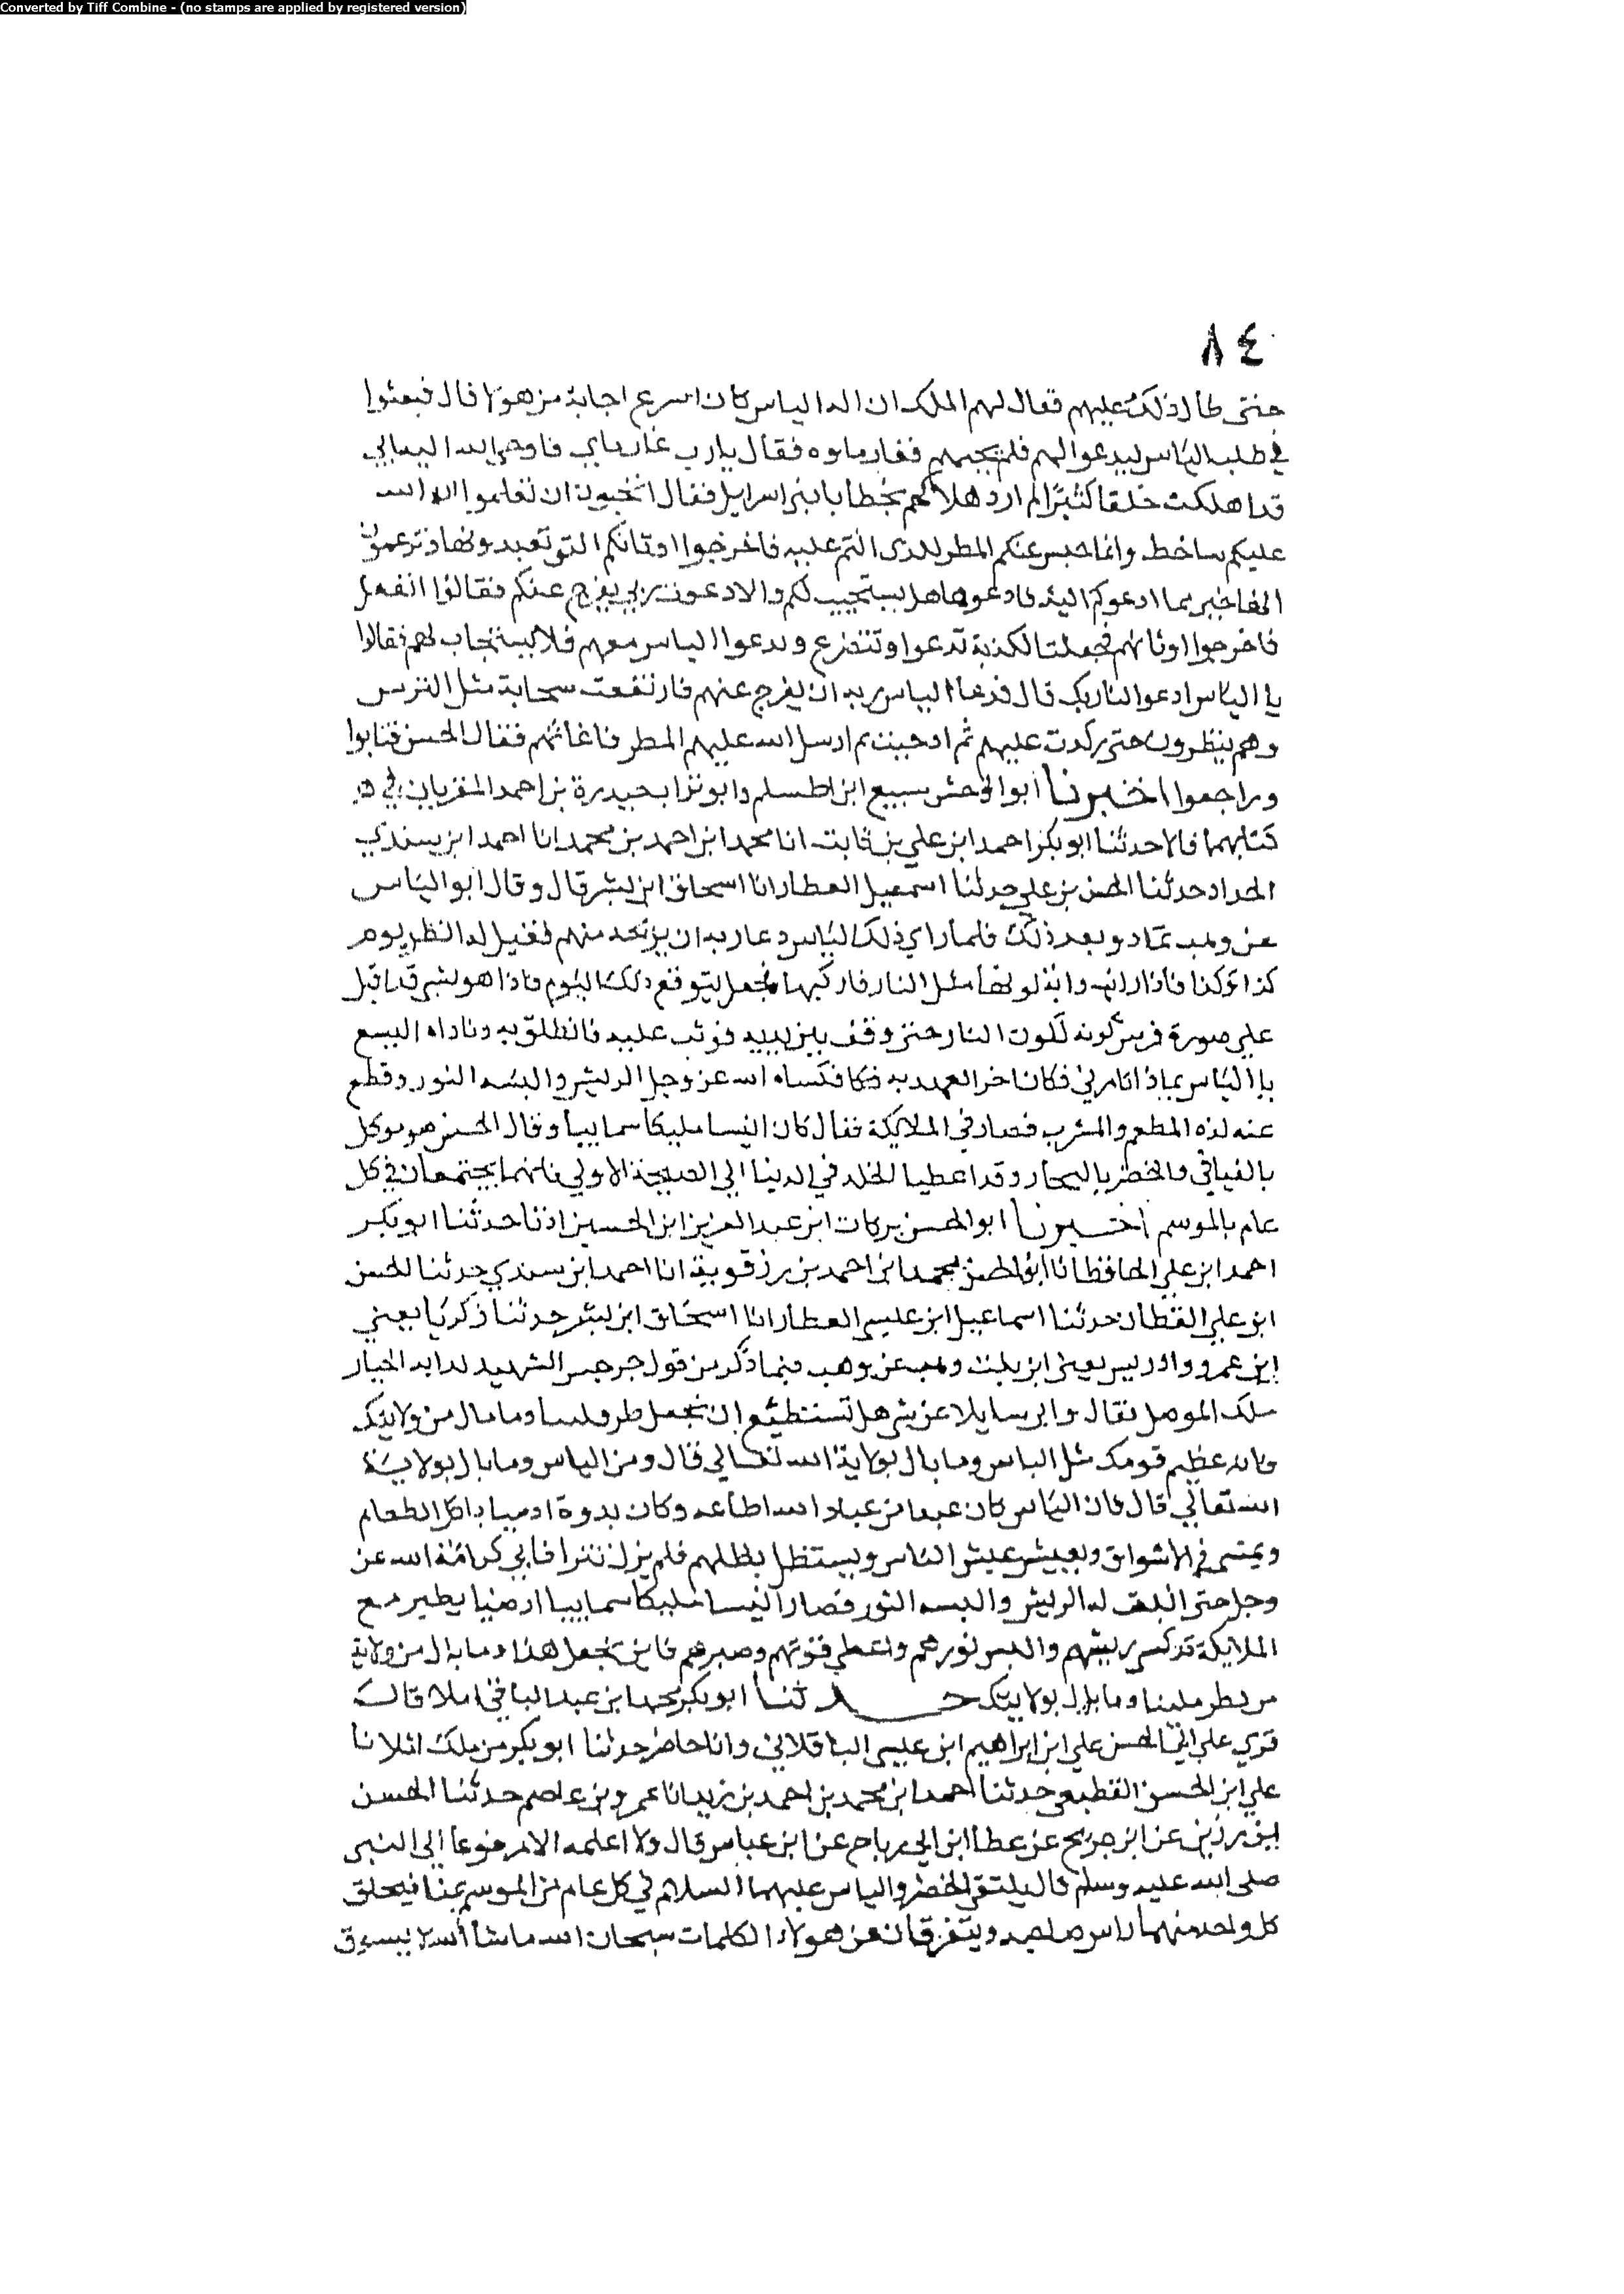 Converted by Tiff Combine - (no stamps are applied by registered version)
٨٤
حتى طال ذلك عليهم فقال لهم الملك ان اله الياس كان اسرع اجابة من هولا قال فبعثوا
في طلب الياس ليدعوا لهم فلم يجبهم فغار ماوه فقال يارب غار ماي فاوحى الله اليه اني
قد اهلكت خلقا كثيرا لم ارد هلاكهم بخطا يا بني اسرايل فقال اتحبون ان تعلموا ان الله
عليكم ساخط وانما حبس عنكم المطر للذي انتم عليه فاخرجوا اوثانكم التي تعبدونها وتزعمون
انها خير مما ادعوكم اليه فادعوها هل يستجيب لكم والا دعوت ربي يفرج عنكم فقالوا انفعل
فاخرجوا اوثانهم فجعلت الكذبة تدعوا وتتضرع ويدعوا الياس معهم فلا يستجاب لهم فقالوا
يا الياس ادعوا لنا ربك قال فدعا الياس ربه ان يفرج عنهم فارتفعت سحابة مثل الترس
وهم ينظرون حتى ركدت عليهم ثم ادجنت ثم ارسل الله عليهم المطر فاغاثهم فقال الحسن فتابوا
وراجعوا اخبرنا ابو الوحش سبيع ابن المسلم وابو تراب حيدرة بن احمد المقريان في
كتابيهما قالا حدثنا ابو بكر احمد ابن علي بن ثابت انا محمد ابن احمد بن محمد انا احمد ابن سندي
الحداد حدثنا الحسن بن علي حدثنا اسمعيل العطار انا اسحاق ابن بشر قال وقال ابو الياس
عن وهب تمادو بعد ذلك فلما راي ذلك الياس دعا ربه ان يريحه منهم فقيل له انظر يوم
كذا وكذا فاذا رايت دابة لونها مثل النار فاركبها فجعل يتوقع ذلك اليوم فاذا هو بشي قد اقبل
علي صورة فرس لونه كلون النار حتى وقف بين يديه فوثب عليه فانطلق به وناداه اليسع
يا الياس بماذا تامرني فكان اخر العهد به فكساه الله عز وجل الريش والبسه النور وقطع
عنه لذه المطعم والمشرب فصار في الملايكة فقال كان انسيا مليكا سماييا وقال الحسن هو موكل
بالفيافي والخضر بالبحار وقد اعطيا الخلد في الدنيا الي الصيحة الاولي فانهما يجتمعان في كل
عام بالموسم اخبرنا ابو الحسن بركات ابن عبد العزيز ابن الحسين اذنا حدثنا ابو بكر
احمد ابن علي الحافظ انا ابو الحسن محمد ابن احمد بن رزقويه انا احمد ابن سندي حدثنا الحسن
ابن علي القطان حدثنا اسماعيل ابن عيسي العطار انا اسحاق ابن بشر حدثنا زكريا يعني
ابن عمرو وادريس يعني ابن بنت وهب عن وهب فيما ذكر من قول جرجس الشهيد الجبار
ملك الموصل فقال واني سايلك عن شي هل تستطيع ان تجعل وما مال من ولايتك
فانه عظيم قومك مثل الياس وما بال بولاية الله تعالي قال ومن الياس وما بال بولاية
الله تعالي قال فان الياس كان عبدا من عباد الله اطاعه وكان بدوة ادميا ياكل الطعام
ويمشي في الاسواق ويعيش عيش الناس ويستظل بظلهم فلم يزل تترا في كرامة الله عز
وجل حتى انبت له الريش والبسه النور فصار انسيا مليكا سماييا ارضيا يطير مع
الملايكة قد كسي ريشهم والبس نورهم واعطي قوتهم وصبرهم فاين تجعل هذا وما بال من ولاية
من وما بال بولايتك حدثنا ابو بكر محمد ابن عبد الباقي املا قال
قري علي ابي الحسن علي ابن ابراهيم ابن عيسي الباقلاني وانا حاضر حدثنا ابو بكر بن ملك املانا
علي ابن الحسن القطيعي حدثنا احمد ابن محمد بن احمد بن زيد انا عمرو بن عاصم حدثنا الحسن
ابن رزين عن ابن جريج عن عطا ابن ابي رباح عن ابن عباس قال ولا اعلمه الا مرفوعا الي النبي
صلى الله عليه وسلم قال يلتقي الخضر والياس عليهما السلام في كل عام من الموسم بمنا فيحلق
كل واحد منهما راس صاحبه ويتفرقان عن هولاء الكلمات سبحان الله ماشا الله لا يسوق